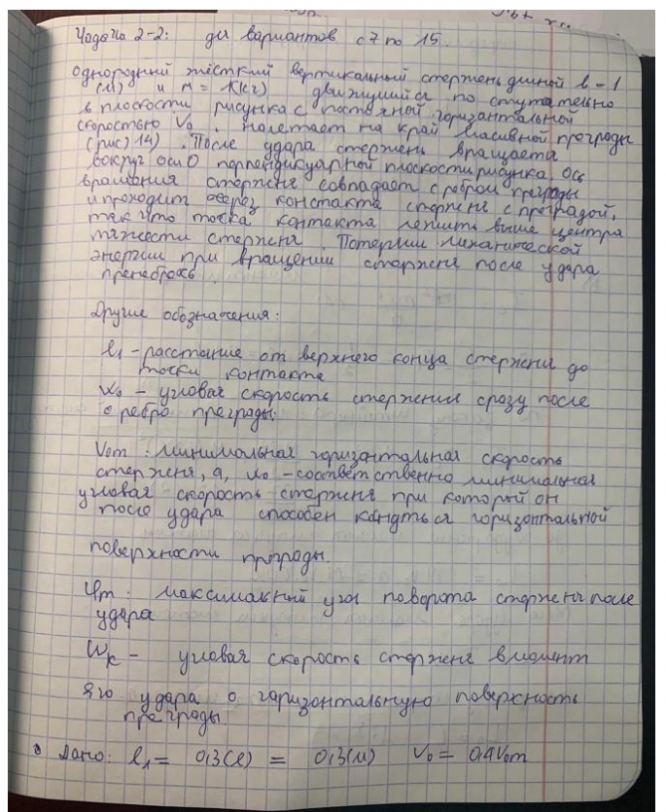 Чодача 2-2: для вариантов с 7 по 15.
однородный жёсткий вертикальный стержень длиной l-1
(м) и m = 1(кг) движущийся поступательно
в плоскости рисунка с постояной горизонтальной
скоростью V₀. налетает на край массивной преграды
(рис) 14). После удара стержень вращается
вокруг оси О перпендикулярной плоскости рисунка. Ось
вращения стержня совпадает с ребром преграды
и проходит через контакта стержня с преградой,
так что точка контакта лежить выше центра
тяжести стержня. Потерями механической
энергии при вращении стержня после удара
пренебречь.
Другие обозначения:
l₁ - расстояние от верхнего конца стержня до
точки контакта
ω₀ - угловая скорость стержния сразу после
о ребро преграды.
V₀m : минимальная горизонтальная скорость
стержня, а, ω₀ - соответственно минимальная
угловая скорость стержня при который он
после удара способен канduться горизонтальной
поверхности преграды.
φm : максимальный угол поворота стержня после
удара
Wк - угловая скорость стержня вмомент
его удара о горизонтальную поверхность
преграды.
Дано: l₁ = 0,3(l) = 0,3(м) V₀ = 0,4V₀m